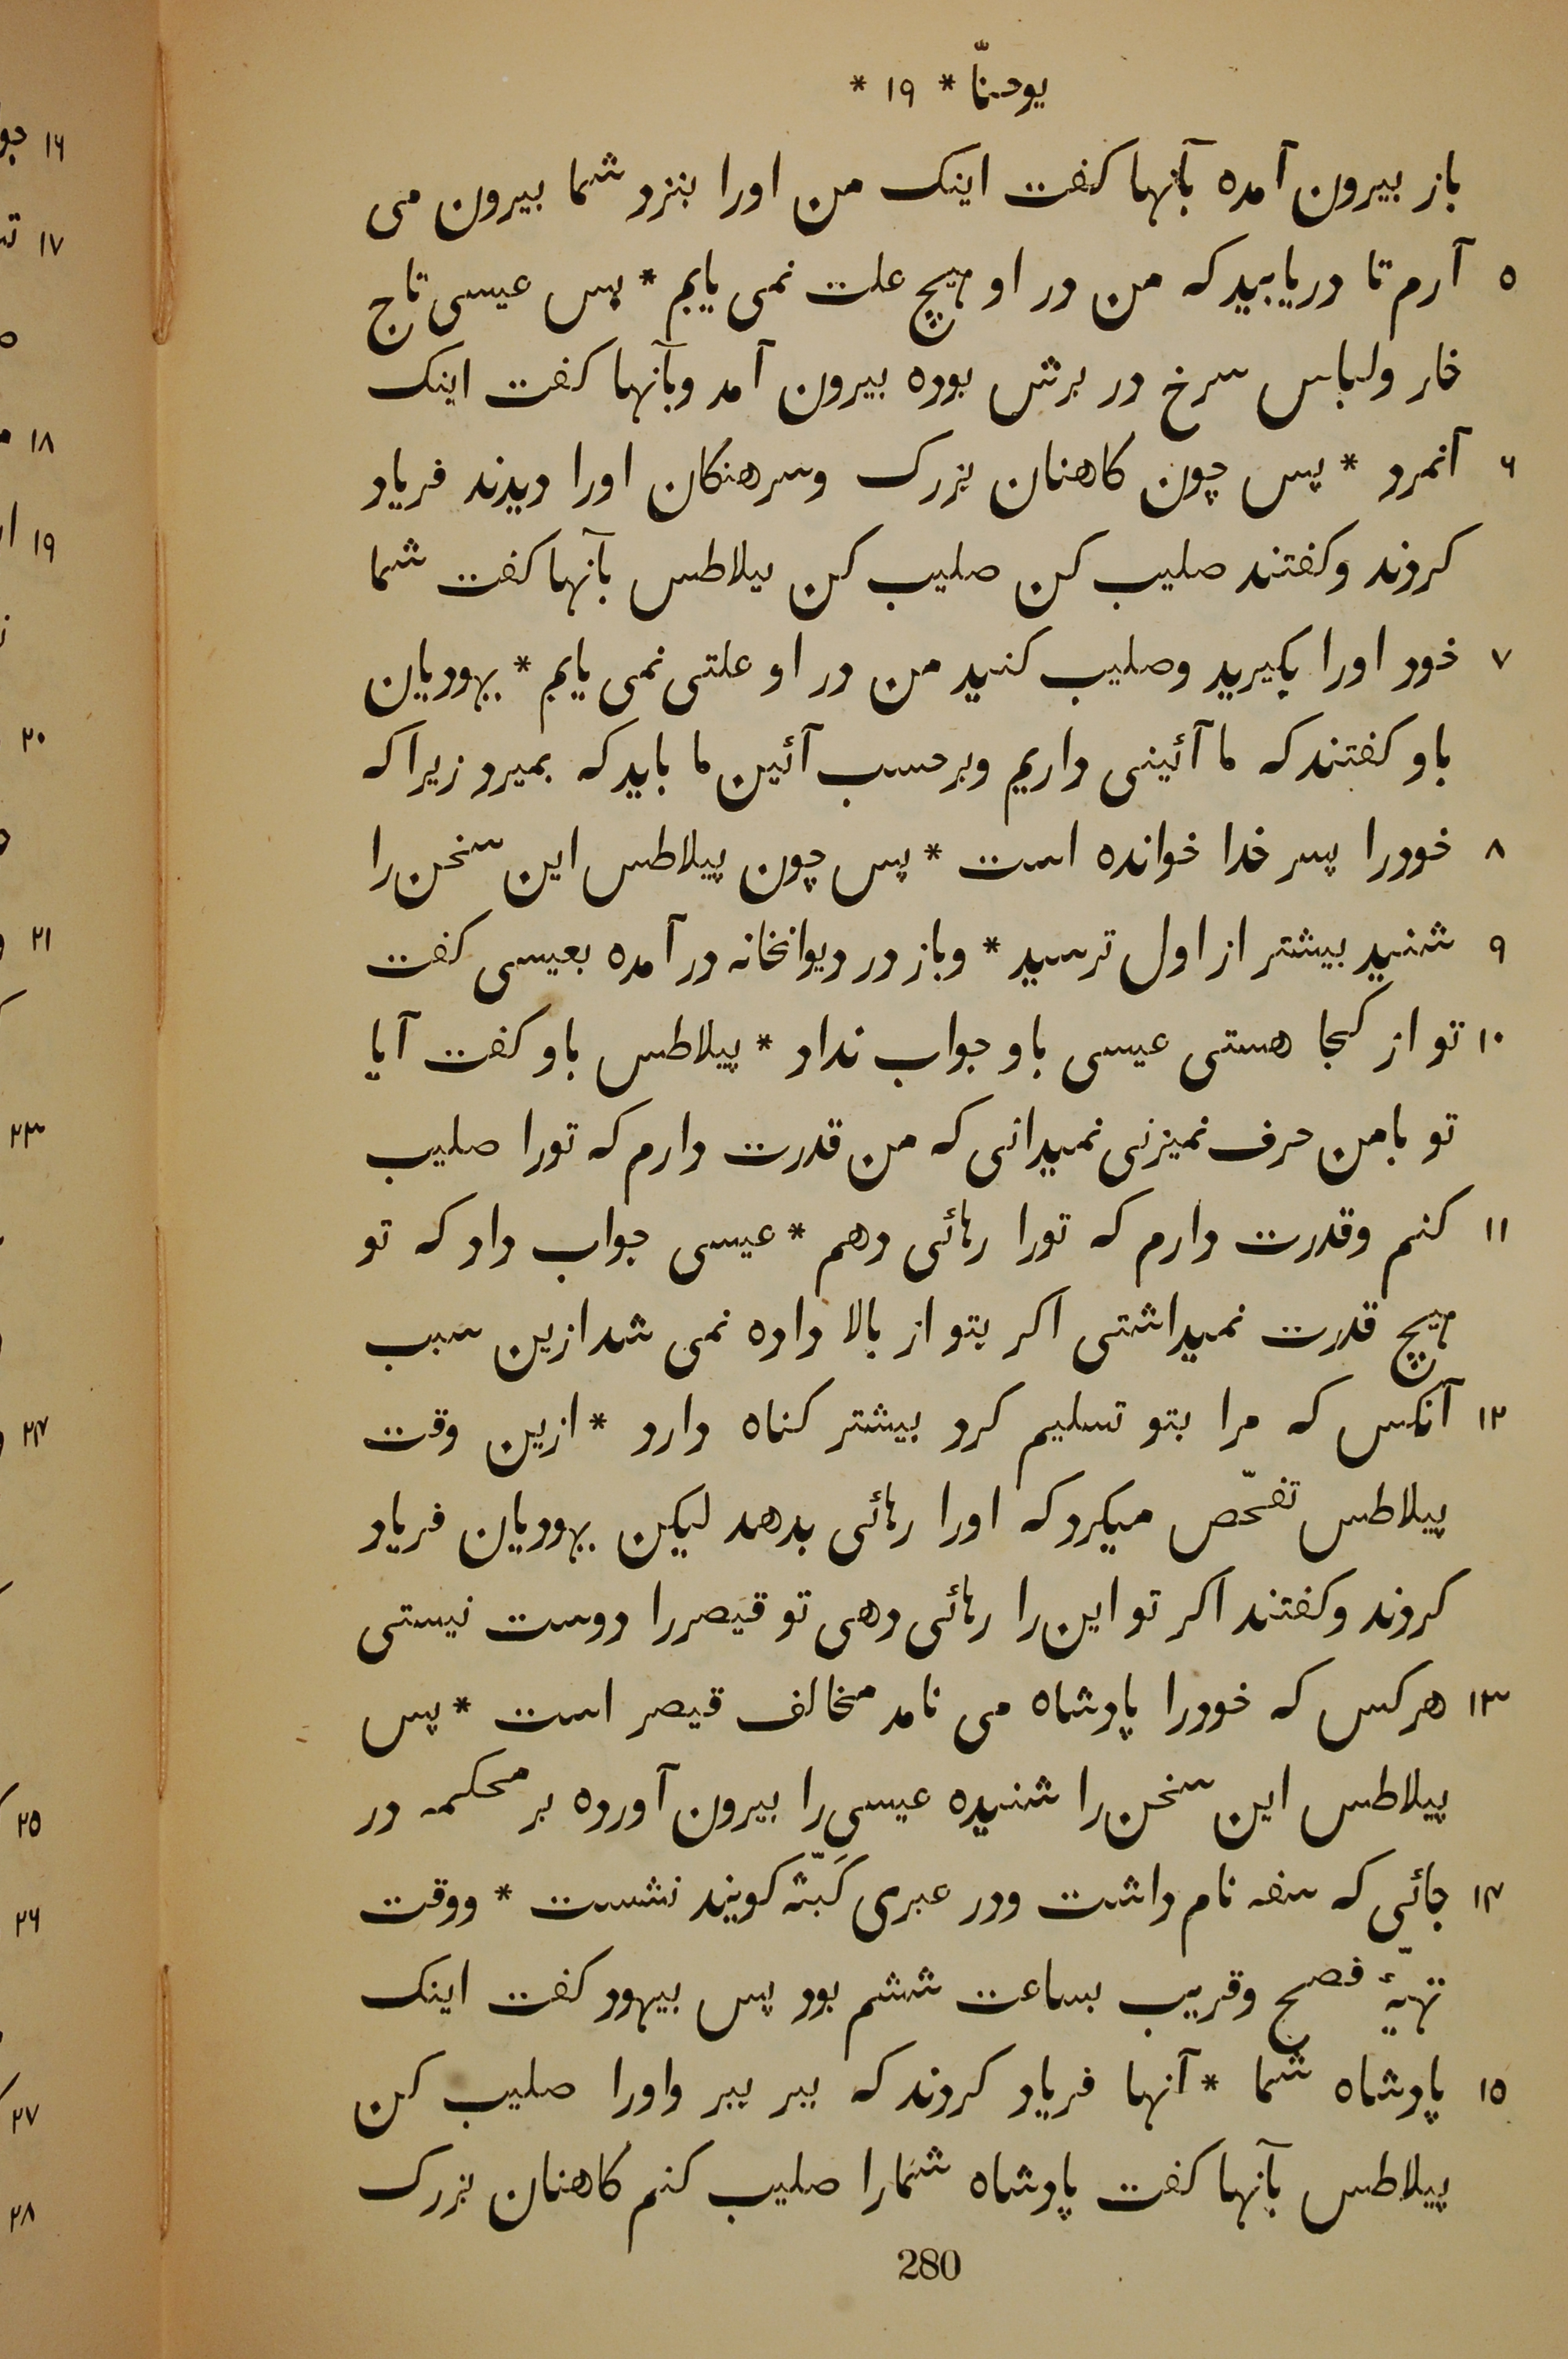 یوحنّا * ۱۹ *
باز بیرون آمده بآنها کفت اینک من اورا بنزد شما بیرون می
۵ آرم تا دریابید که من در او هیچ علت نمی یابم * پس عیسی تاج
خار ولباس سرخ در برش بوده بیرون آمد وبآنها کفت اینک
۶ آنمرد * پس چون کاهنان بزرک وسرهنکان اورا دیدند فریاد
کردند وکفتند صلیب کن صلیب کن پیلاطس بآنها کفت شما
۷ خود اورا بکیرید وصلیب کنید من در او علتی نمی یابم * یهودیان
باو کفتند که ما آئینی داریم وبرحسب آئین ما باید که بمیرد زیرا که
۸ خودرا پسر خدا خوانده است * پس چون پیلاطس این سخن را
۹ شنید بیشتر از اول ترسید * وباز در دیوانخانه در آمده بعیسی کفت
۱۰ تو از کجا هستی عیسی باو جواب نداد * پیلاطس باو کفت آیا
تو بامن حرف نمیزنی نمیدانی که من قدرت دارم که تورا صلیب
۱۱ کنم وقدرت دارم که تورا رهائی دهم * عیسی جواب داد که تو
هیچ قدرت نمیداشتی اکر بتو از بالا داده نمی شد ازین سبب
۱۲ آنکس که مرا بتو تسلیم کرد بیشتر کناه دارد * ازین وقت
پیلاطس تفحّص میکرد که اورا رهائی بدهد لیکن یهودیان فریاد
کردند وکفتند اکر تو این را رهائی دهی تو قیصررا دوست نیستی
۱۳ هرکس که خودرا پادشاه می نامد مخالف قیصر است * پس
پیلاطس این سخن را شنیده عیسی را بیرون آورده بر محکمه در
۱۴ جائی که سفه نام داشت ودر عبری کَبّثه کویند نشست * ووقت
تهیّهٔ فصح وقریب بساعت ششم بود پس بیهود کفت اینک
۱۵ پادشاه شما * آنها فریاد کردند که ببر ببر واورا صلیب کن
پیلاطس بآنها کفت پادشاه شمارا صلیب کنم کاهنان بزرک
280
۱۶
۱۷
۱۸
۱۹
۲۰
۲۱
۲۳
۲۴
۲۵
۲۶
۲۷
۲۸